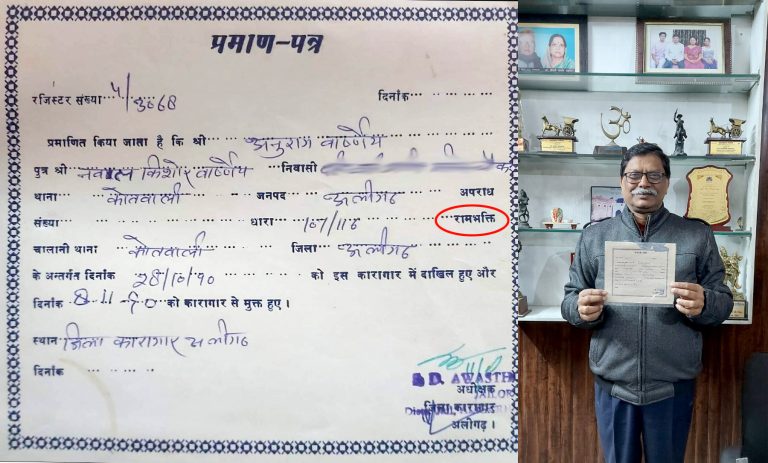 प्रमाण-पत्र
रजिस्टर संख्या 4/3668 दिनांक
प्रमाणित किया जाता है कि श्री अनुराग वार्ष्णेय
पुत्र श्री नवल किशोर वार्ष्णेय निवासी
थाना कोतवाली जनपद अलीगढ अपराध
संख्या धारा 107/116 रामभक्ति
चालानी थाना कोतवाली जिला अलीगढ
के अन्तर्गत दिनांक 28/10/90 को इस कारागार में दाखिल हुए और
दिनांक 8-11-90 को कारागार से मुक्त हुए।
स्थान जिला कारागार अलीगढ
दिनांक
D. AWASTHI
JAILOR
अधीक्षक
जिला कारागार
अलीगढ़।